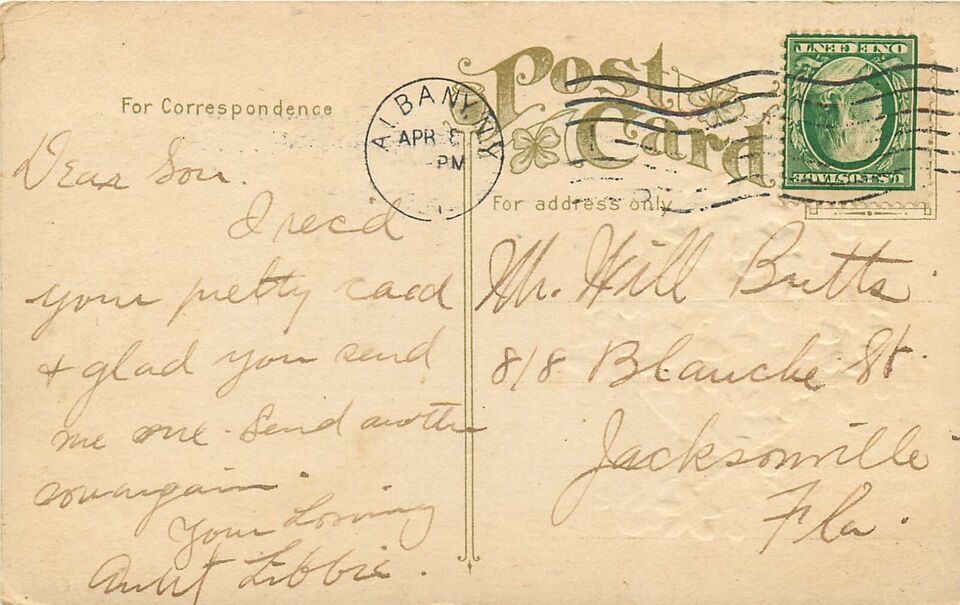 Post
Card
ALBANY, N.Y.
APR 8
PM
ONE CENT
U.S. POSTAGE
For Correspondence
For address only
Dear Son.
I rec'd
your pretty card
& glad you send
me one. Send another
soon again.
Your Loving
Aunt Libbie.
Mr. Will Butts
818 Blanche St.
Jacksonville
Fla.